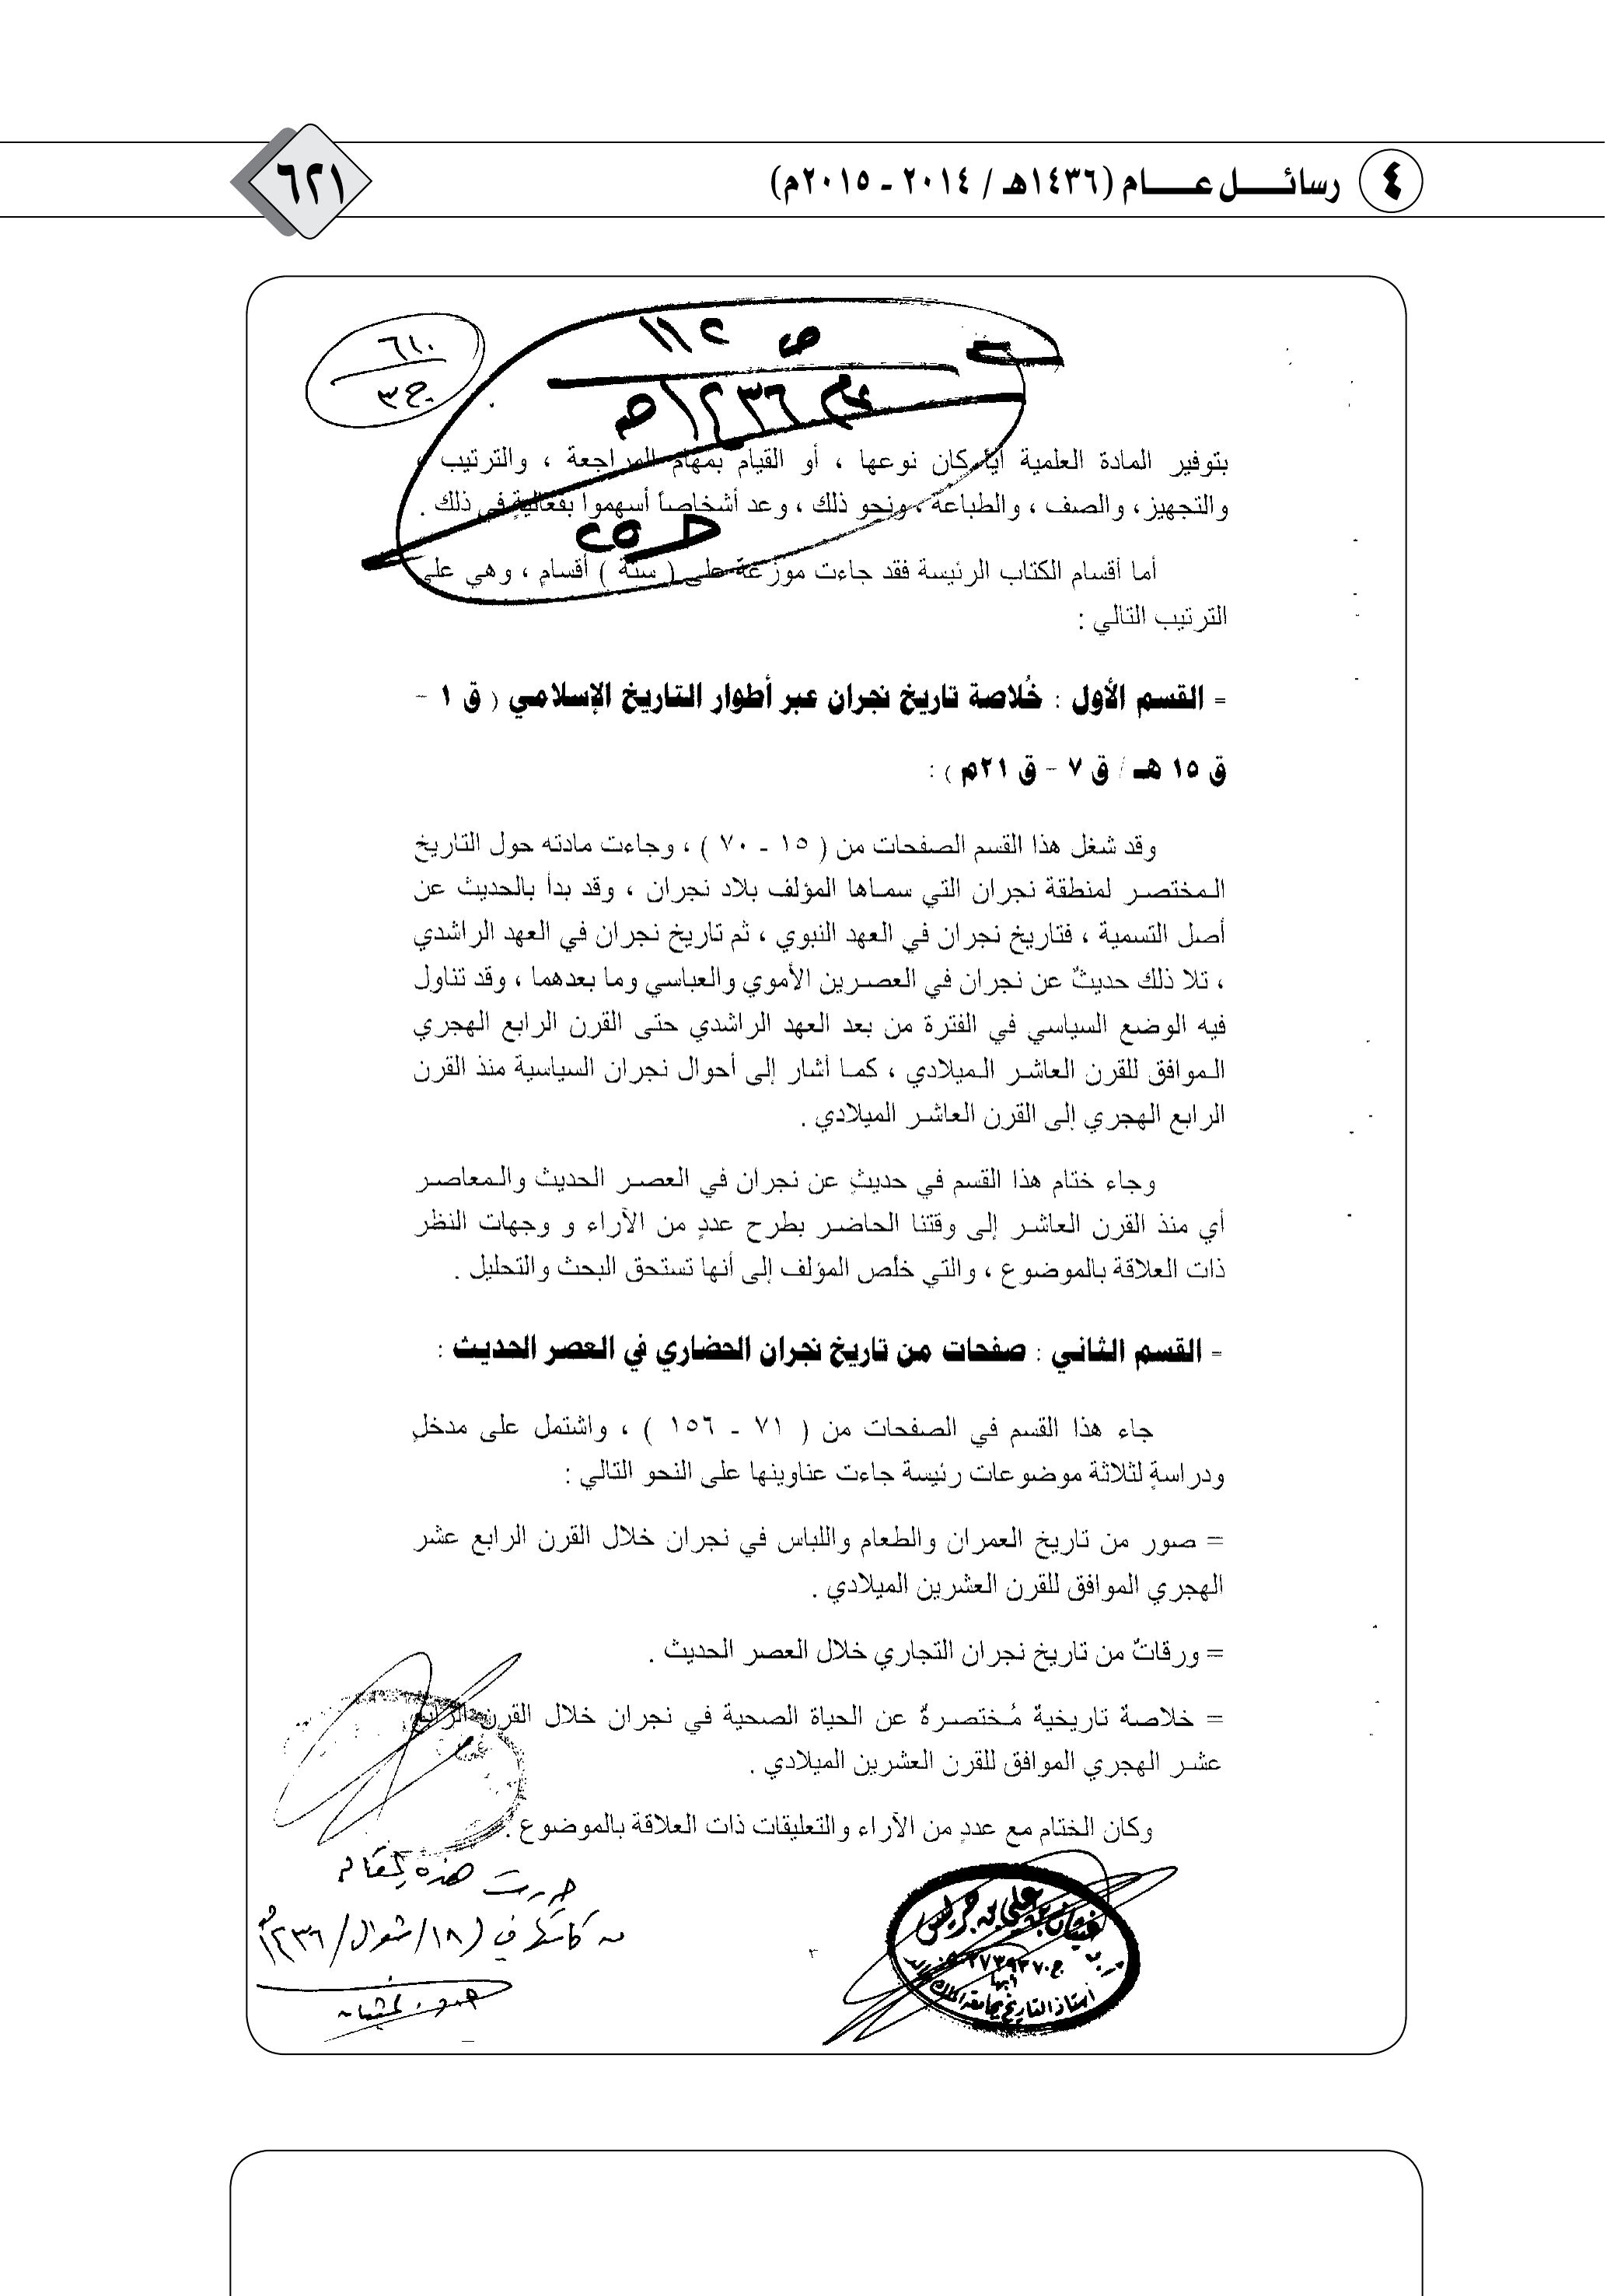 ٤ رسائـــل عـــام (١٤٣٦هـ / ٢٠١٤ - ٢٠١٥م)
٦٢١
ص ١١٢
عام ١٤٣٦هـ
٦١٠
ج ٣
بتوفير المادة العلمية أياً كان نوعها ، أو القيام بمهام المراجعة ، والترتيب ،
والتجهيز، والصف ، والطباعة ، ونحو ذلك ، وعد أشخاصاً أسهموا بفعاليةٍ في ذلك .
أما أقسام الكتاب الرئيسة فقد جاءت موزعة على ( ستة ) أقسامٍ ، وهي على
الترتيب التالي :
= القسم الأول : خُلاصة تاريخ نجران عبر أطوار التاريخ الإسلامي ( ق ١ -
ق ١٥ هـ / ق ٧ - ق ٢١م ) :
وقد شغل هذا القسم الصفحات من ( ١٥ - ٧٠ ) ، وجاءت مادته حول التاريخ
المختصر لمنطقة نجران التي سماها المؤلف بلاد نجران ، وقد بدأ بالحديث عن
أصل التسمية ، فتاريخ نجران في العهد النبوي ، ثم تاريخ نجران في العهد الراشدي
، تلا ذلك حديثٌ عن نجران في العصرين الأموي والعباسي وما بعدهما ، وقد تناول
فيه الوضع السياسي في الفترة من بعد العهد الراشدي حتى القرن الرابع الهجري
الموافق للقرن العاشر الميلادي ، كما أشار إلى أحوال نجران السياسية منذ القرن
الرابع الهجري إلى القرن العاشر الميلادي .
وجاء ختام هذا القسم في حديثٍ عن نجران في العصر الحديث والمعاصر
أي منذ القرن العاشر إلى وقتنا الحاضر بطرح عددٍ من الآراء و وجهات النظر
ذات العلاقة بالموضوع ، والتي خلُص المؤلف إلى أنها تستحق البحث والتحليل .
= القسم الثاني : صفحات من تاريخ نجران الحضاري في العصر الحديث :
جاء هذا القسم في الصفحات من ( ٧١ - ١٥٦ ) ، واشتمل على مدخلٍ
ودراسةٍ لثلاثة موضوعات رئيسة جاءت عناوينها على النحو التالي :
= صور من تاريخ العمران والطعام واللباس في نجران خلال القرن الرابع عشر
الهجري الموافق للقرن العشرين الميلادي .
= ورقاتٌ من تاريخ نجران التجاري خلال العصر الحديث .
= خلاصة تاريخيةٌ مُختصرةٌ عن الحياة الصحية في نجران خلال القرن الرابع
عشر الهجري الموافق للقرن العشرين الميلادي .
وكان الختام مع عددٍ من الآراء والتعليقات ذات العلاقة بالموضوع .
هذه المقالة
من كاتبها في (١٨/شوال/١٤٣٦هـ
٣
غيثان بن علي بن جريس
أبها
أستاذ التاريخ بجامعة الملك خالد